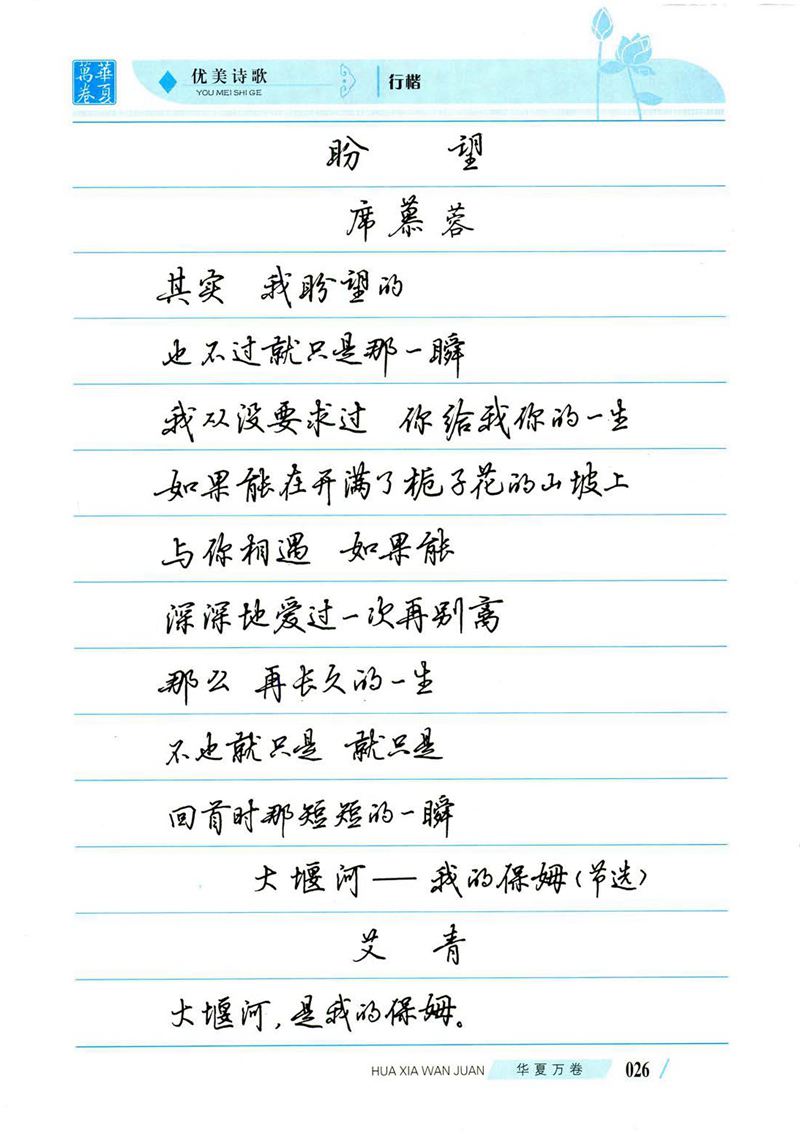 華夏萬卷
优美诗歌
YOU MEI SHI GE
行楷
盼 望
席慕蓉
其实 我盼望的
也不过就只是那一瞬
我从没要求过 你给我你的一生
如果能在开满了栀子花的山坡上
与你相遇 如果能
深深地爱过一次再别离
那么 再长久的一生
不也就只是 就只是
回首时那短短的一瞬
大堰河——我的保姆(节选)
艾 青
大堰河,是我的保姆。
HUA XIA WAN JUAN
华夏万卷
026